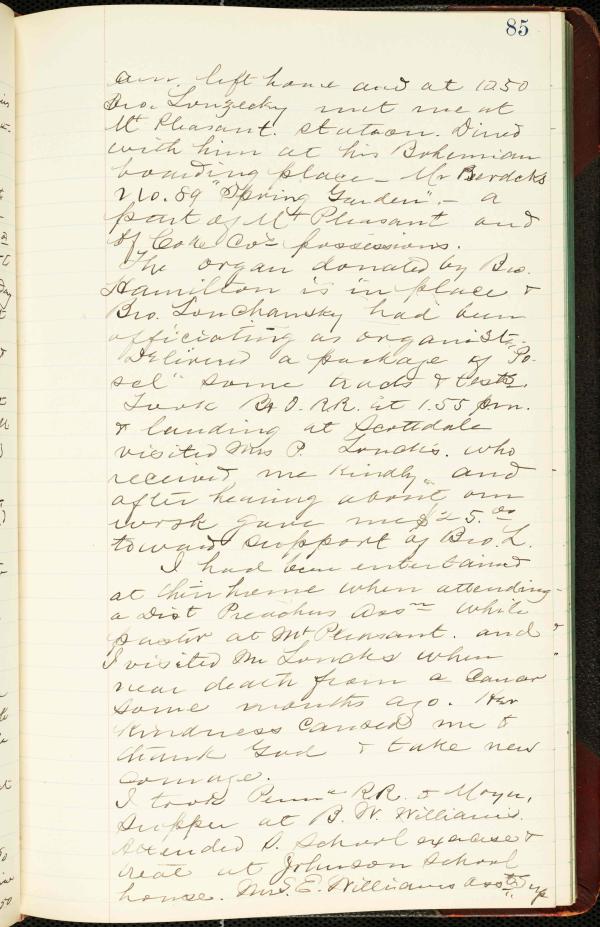 85
am. left home and at 1250
Bro. Lonzecky met me at
Mt Pleasant. station. Dined
with him at his Bohemian
boarding place - Mr Bardeks
No. 89 "Spring Garden". - a
part of Mt Pleasant and
of Coke Co's possessions.
The organ donated by Bro.
Hamilton is in place &
Bro. Lonchansky had been
officiating as organist.
Delivered a package of "Po-
sel" some tracts & tests.
Took B & O. RR. at 1.55 pm.
& landing at Scottdale
visited Mrs P. Loucks. who
received me kindly and
after hearing about our
work gave me $25.00
toward support of Bro. L.
I had been entertained
at their home when attending
a Dist Preachers Assn while
pastor at Mt Pleasant. and
I visited Mr Loucks when
near death from a Cancer
some months ago. Her
kindness caused me to
thank God & take new
courage.
I took Penna RR. to Moyer,
supper at B. W. Williams.
Attended S. School exercise &
treat at Johnson School
house. Mrs. E. Williams asst Sup